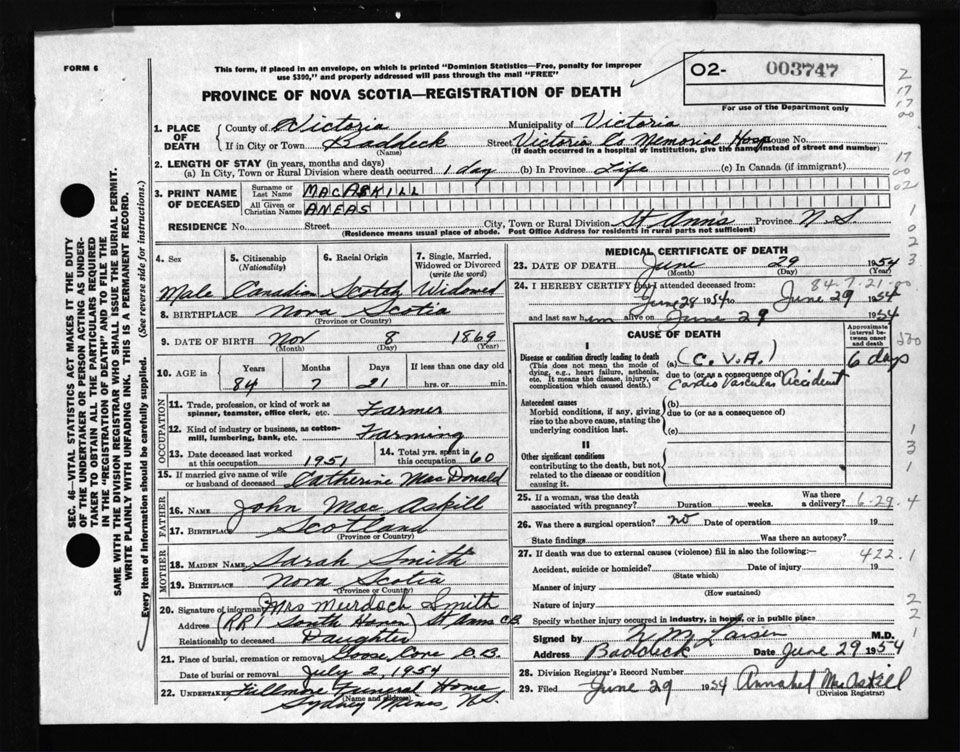 FORM 6
This form, if placed in an envelope, on which is printed "Dominion Statistics—Free, penalty for improper
use $300," and properly addressed will pass through the mail "FREE"
02- 003747
For use of the Department only
PROVINCE OF NOVA SCOTIA—REGISTRATION OF DEATH
1. PLACE OF DEATH
County of Victoria Municipality of Victoria
If in City or Town Baddeck Street Victoria Co. Memorial Hosp House No.
(Name) (If death occurred in a hospital or institution, give the name instead of street and number)
2. LENGTH OF STAY (in years, months and days)
(a) In City, Town or Rural Division where death occurred 1 day (b) In Province Life (c) In Canada (if immigrant)
3. PRINT NAME OF DECEASED
Surname or Last Name MACASKILL
All Given or Christian Names ANEAS
RESIDENCE No. Street City, Town or Rural Division St Ann's Province N.S.
(Residence means usual place of abode. Post Office Address for residents in rural parts not sufficient)
4. Sex 5. Citizenship (Nationality) 6. Racial Origin 7. Single, Married, Widowed or Divorced (write the word)
Male Canadian Scotch Widowed
8. BIRTHPLACE Nova Scotia
(Province or Country)
9. DATE OF BIRTH Nov 8 1869
(Month) (Day) (Year)
10. AGE in Years Months Days If less than one day old
84 7 21 hrs. or min.
OCCUPATION
11. Trade, profession, or kind of work as spinner, teamster, office clerk, etc. Farmer
12. Kind of industry or business, as cotton-mill, lumbering, bank, etc. Farming
13. Date deceased last worked at this occupation 1951 14. Total yrs. spent in this occupation 60
15. If married give name of wife or husband of deceased Catherine MacDonald
FATHER
16. Name John MacAskill
17. Birthplace Scotland
(Province or Country)
MOTHER
18. MAIDEN NAME Sarah Smith
19. BIRTHPLACE Nova Scotia
(Province or Country)
20. Signature of informant Mrs Murdoch Smith
Address (RR1 South Haven) St Anns C.B.
Relationship to deceased Daughter
21. Place of burial, cremation or removal Goose Cove C.B.
Date of burial or removal July 2, 1954
22. UNDERTAKER Fillmore Funeral Home
(Name and address)
Sydney Mines, N.S.
MEDICAL CERTIFICATE OF DEATH
23. DATE OF DEATH June 29 1954
(Month) (Day) (Year)
84.7.21.00
24. I HEREBY CERTIFY that I attended deceased from:
June 28 1954 to June 29 1954
and last saw him alive on June 29 1954
CAUSE OF DEATH
Approximate interval between onset and death
I
Disease or condition directly leading to death (a) (C.V.A.) 6 days
(This does not mean the mode of dying, e.g., heart failure, asthenia, etc. It means the disease, injury, or complication which caused death.)
due to (or as a consequence of)
Cardio Vascular Accident
Antecedent causes
Morbid conditions, if any, giving rise to the above cause, stating the underlying condition last.
(b)
due to (or as a consequence of)
(c)
II
Other significant conditions
contributing to the death, but not related to the disease or condition causing it.
25. If a woman, was the death associated with pregnancy? Duration weeks. Was there a delivery? 6-29.4
26. Was there a surgical operation? no Date of operation 19
State findings Was there an autopsy?
27. If death was due to external causes (violence) fill in also the following:— 422.1
Accident, suicide or homicide? Date of injury 19
(State which)
Manner of injury
(How sustained)
Nature of injury
Specify whether injury occurred in industry, in home, or in public place
Signed by M.D.
Address Baddeck Date June 29 1954
28. Division Registrar's Record Number
29. Filed June 29 1954 Annabel MacAskill
(Division Registrar)
SEC. 46—VITAL STATISTICS ACT MAKES IT THE DUTY
OF THE UNDERTAKER OR PERSON ACTING AS UNDER-
TAKER TO OBTAIN ALL THE PARTICULARS REQUIRED
IN THE "REGISTRATION OF DEATH" AND TO FILE THE
SAME WITH THE DIVISION REGISTRAR WHO SHALL ISSUE THE BURIAL PERMIT.
WRITE PLAINLY WITH UNFADING INK. THIS IS A PERMANENT RECORD.
Every item of information should be carefully supplied. (See reverse side for instructions.)